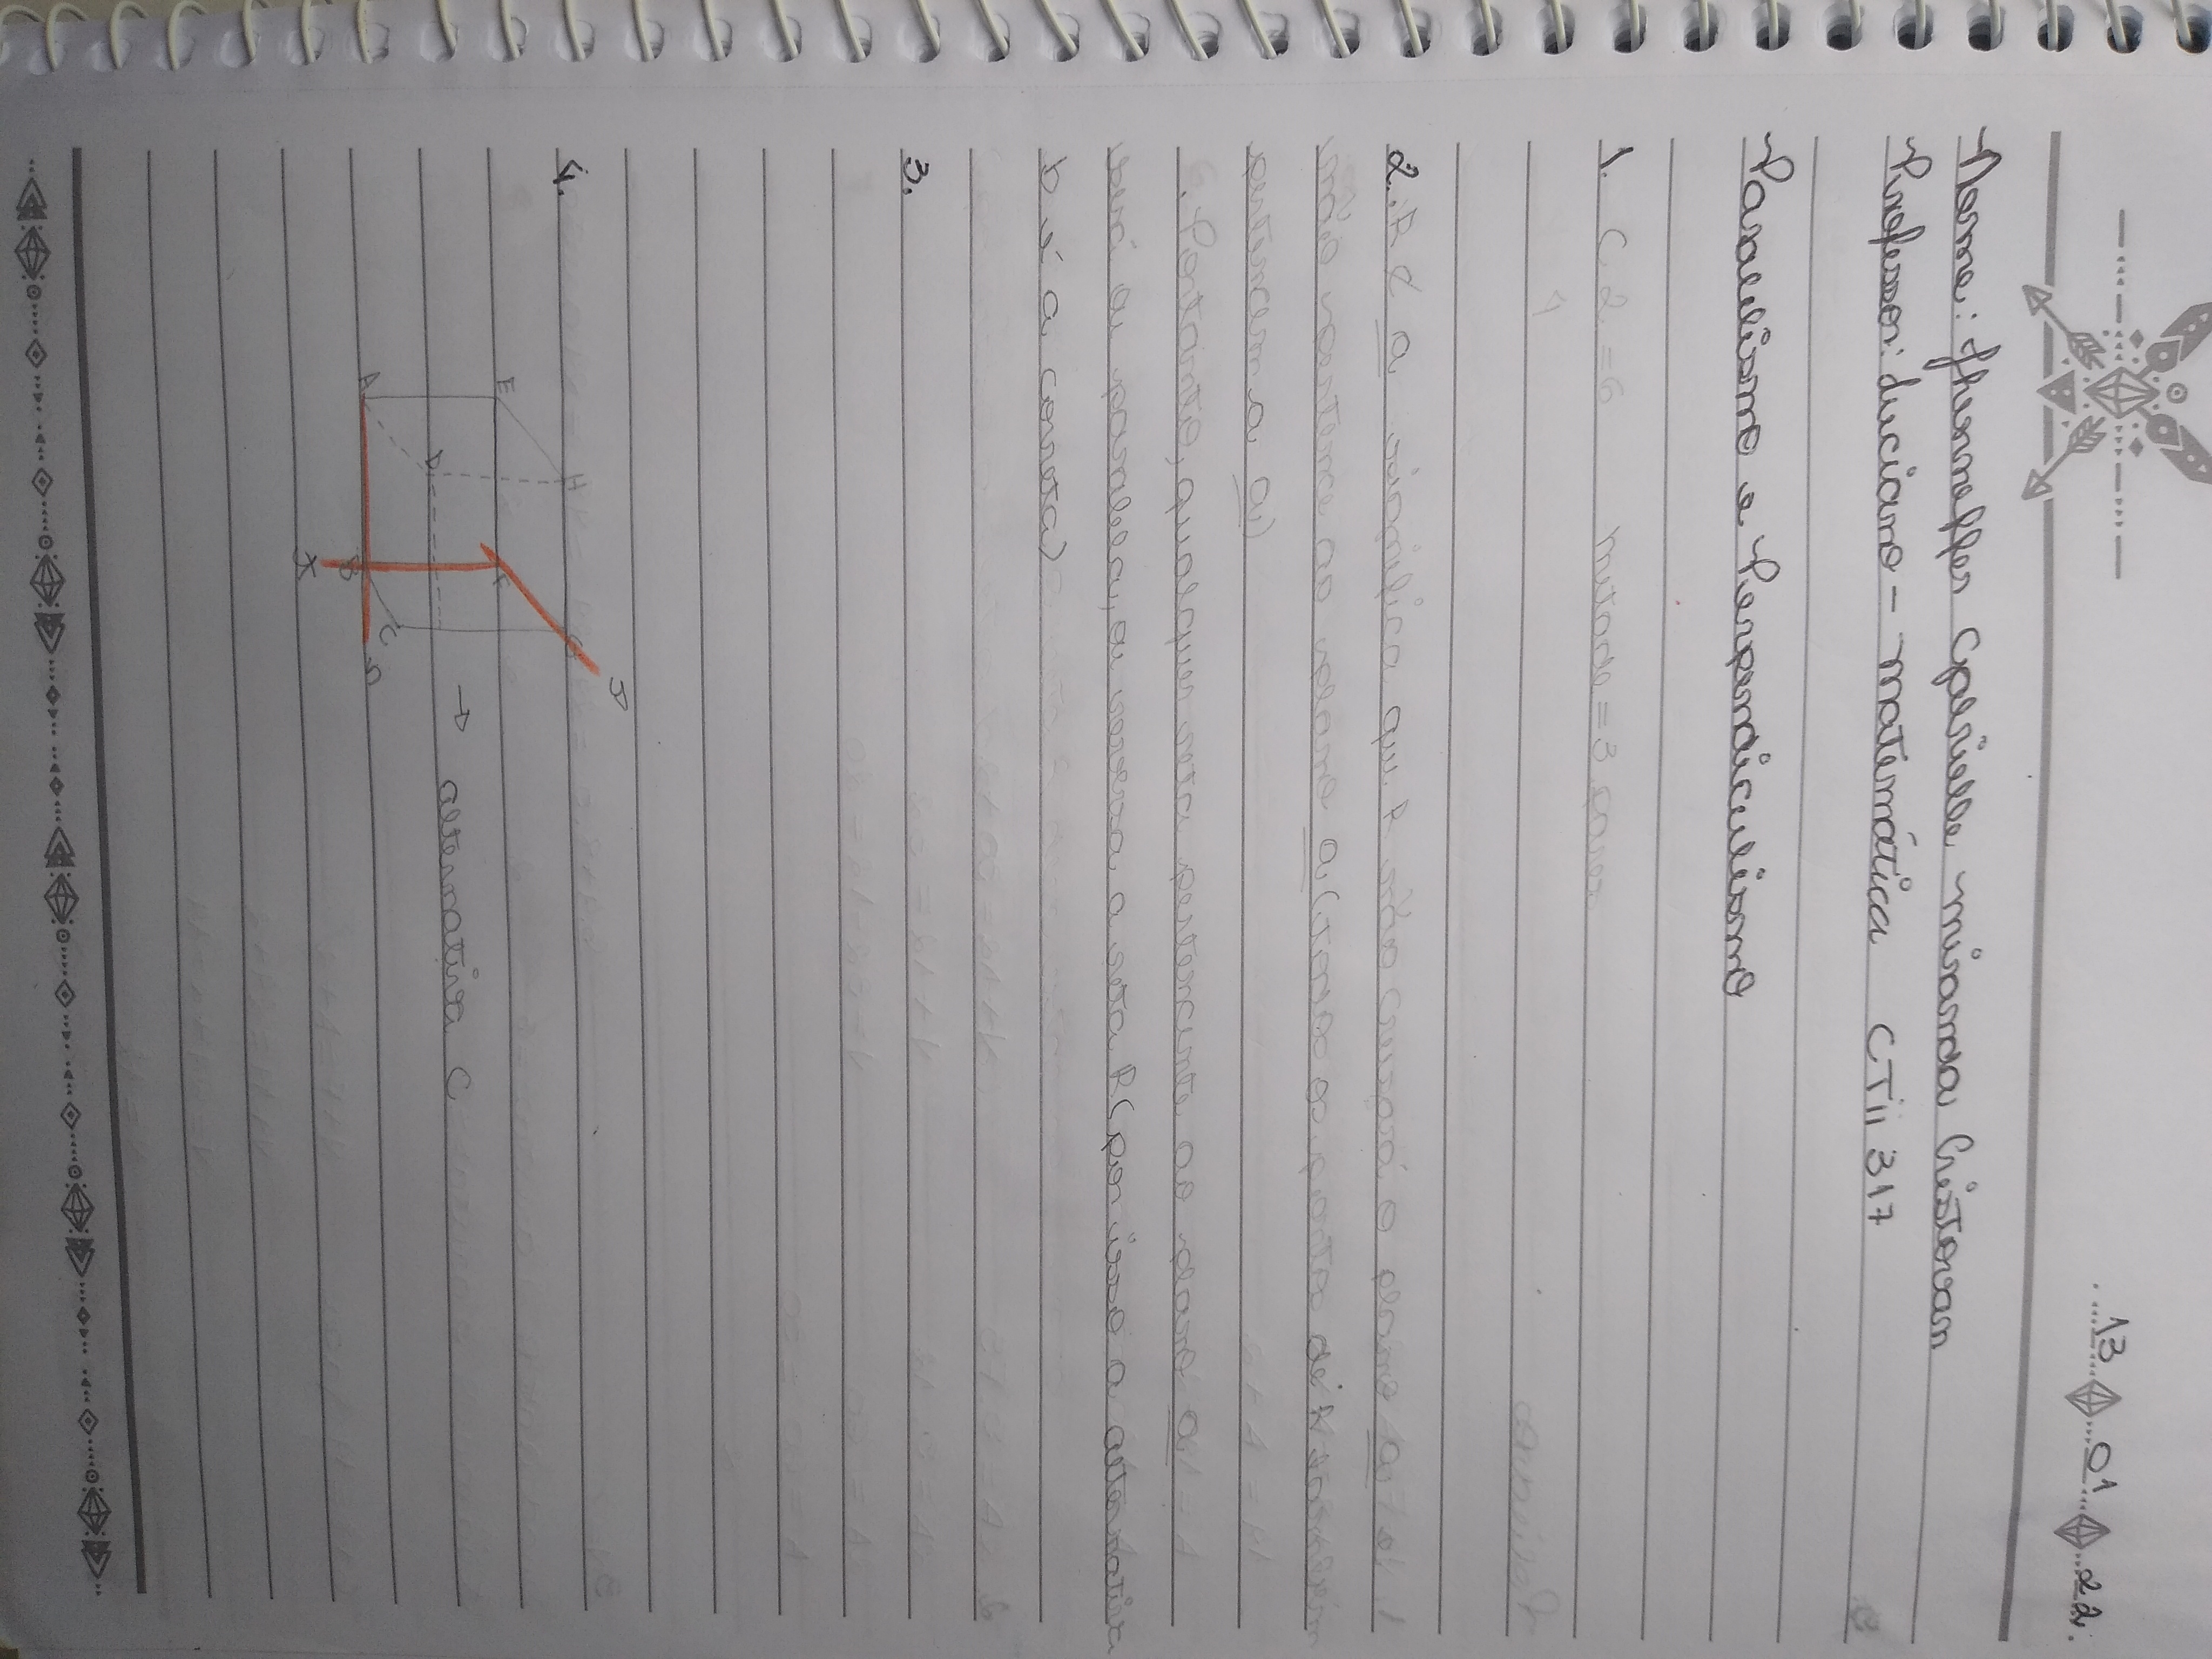 13 01 22
Nome: Jhenneffer Gabrielle Miranda Cristovan
Professor: Luciano - matemática CTii 317
Paralelismo e Perpendiculismo
1. C 2 = 6 metade = 3 pares
4
2. R ⊄ a significa que R não cruzará o plano a e
não pertence ao plano a (todos os pontos de R também
pertencem a a)
. Portanto, qualquer reta pertencente ao plano a
será ou paralela, ou reversa a reta R (por isso a alternativa
b é a correta)
3.
4.
H G
E F
D → alternativa C
C
A B